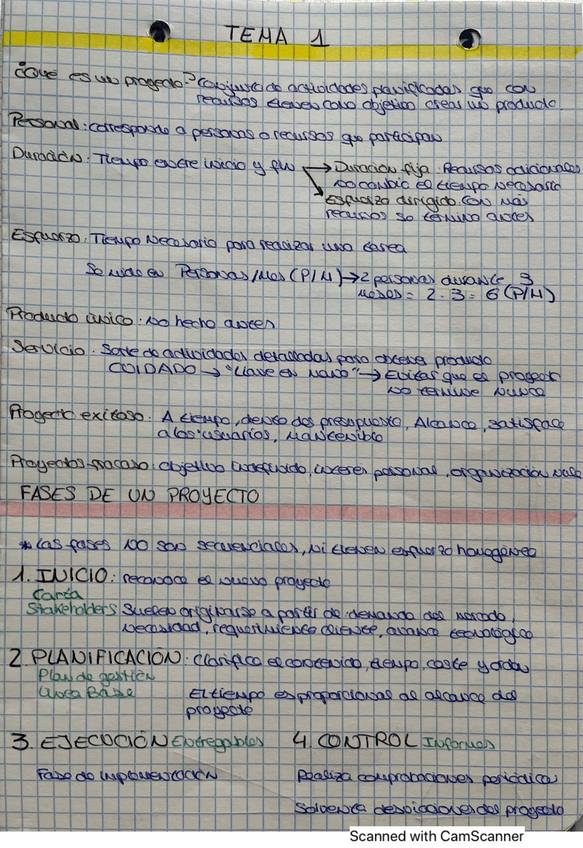 TEMA 1
¿Qué es un proyecto? Conjunto de actividades planificadas que con
recursos tienen como objetivo crear un producto.
Personal: corresponde a personas o recursos que participan
Duración: Tiempo entre inicio y fin → Duración fija: Recursos adicionales
no cambia el tiempo necesario
Esfuerzo dirigido: Con más
recursos se termina antes
Esfuerzo: Tiempo necesario para realizar una tarea
Se mide en Personas/Mes (P/M) → 2 personas durante 3
meses = 2 · 3 = 6 (P/M)
Producto único: no hecho antes
Servicio: Serie de actividades detalladas para obtener producto
CUIDADO → "Llave en mano" → Evitar que el proyecto
no termine nunca
Proyecto exitoso: A tiempo, dentro del presupuesto, Alcance, satisface
a los usuarios, mantenible
Proyectos fracaso: objetivo indefinido, interés personal, organización mala
FASES DE UN PROYECTO
* Las fases NO son secuenciales, ni tienen esfuerzo homogéneo
1. INICIO: reconoce el nuevo proyecto
Carta
Stakeholders Suelen originarse a partir de: demanda del mercado,
necesidad, requerimiento cliente, avance tecnológico
2. PLANIFICACIÓN: Clarifica el contenido, tiempo, coste y orden
Plan de gestión
Línea Base El tiempo es proporcional al alcance del
proyecto
3. EJECUCIÓN Entregables 4. CONTROL Informes
Fase de implementación Realiza comprobaciones periódicas
Solventa desviaciones del proyecto
Scanned with CamScanner